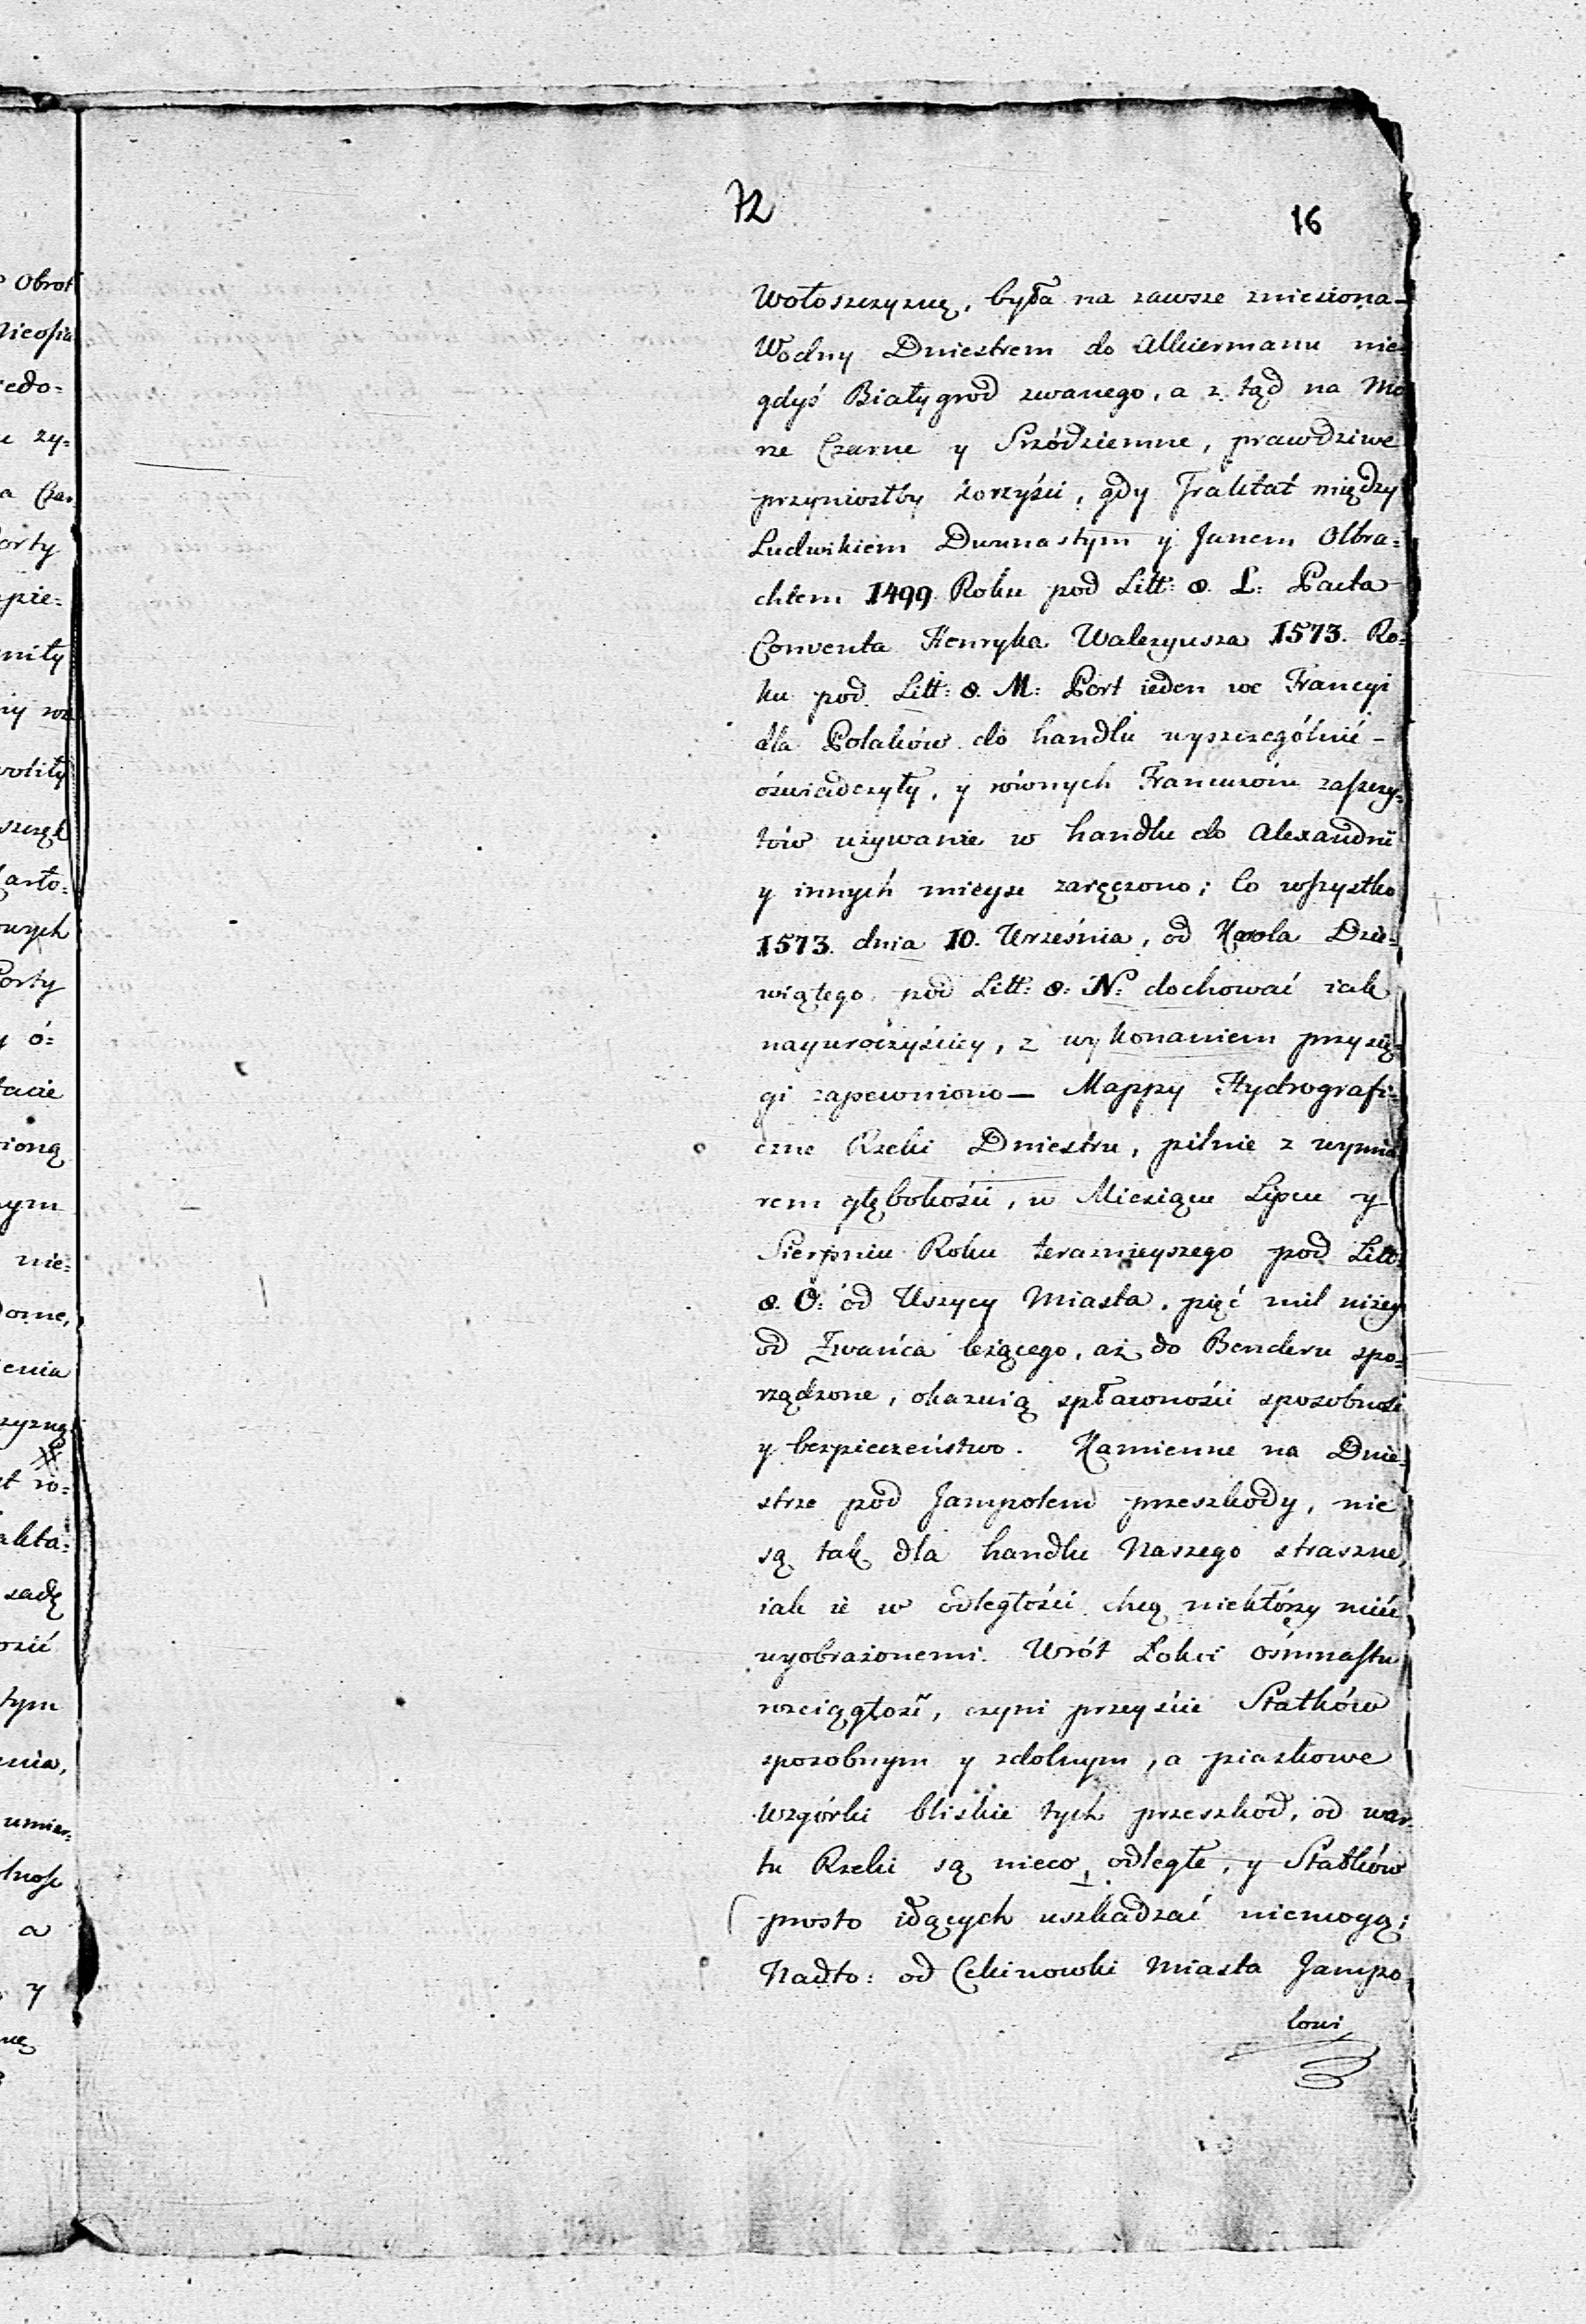 72
16
Wołoszczyznę, była na zawsze zniesiona_
Wodny Dniestrem do Alkiermanu nie=
gdyś Białygrod zwanego, a z tąd na Mo
rze Czarne y Srzódziemne, prawdziwe
przyniosłby korzyści, gdy Traktat między
Ludwikiem Dwunastym y Janem Olbra=
chtem 1499 Roku pod Litt: 8. L: Pacta
Conventa Henryka Walezyusza 1573. Ro=
ku pod Litt: 8. M: Port ieden we Francyi
dla Polaków do handlu wyszczególnić -
oświadczyły, y równych Francuzom zaszczy=
tów używanie w handlu do Alexandrii
y innych mieysc zaręczono; Co wszystko
1573. dnia 10. Września, od Karola Dzie=
wiątego pod Litt: 8: N: dochować iak
nayuroczyściey, z wykonaniem przysię=
gi zapewniono— Mappy Hydrografi=
czne Rzeki Dniestru, pilnie z wymia
rem głębokości, w Miesiącu Lipcu y
Sierpniu Roku teraznieyszego pod Litt:
8. O: od Uszycy Miasta, pięć mil niżey
od Żwańca leżącego, aż do Benderu spo=
rządzone, okazuią spławności sposobność
y bezpieczeństwo. Kamienne na Dnie=
strze pod Jampolem przeszkody, nie
są tak dla handlu Naszego straszne,
iak ie w odległości chcą niektórzy mieć
wyobrażonemi. Wrót Łokci ośmnastu
rozciągłość, czyni przeyście Statków
sposobnym y zdolnym, a piaskowe
wzgórki bliskie tych przeszkód, od war=
tu Rzeki są nieco odległe, y Statków
prosto idących uszkadzać niemogą;
Nadto: od Cekinowki Miasta Jampo
lowi